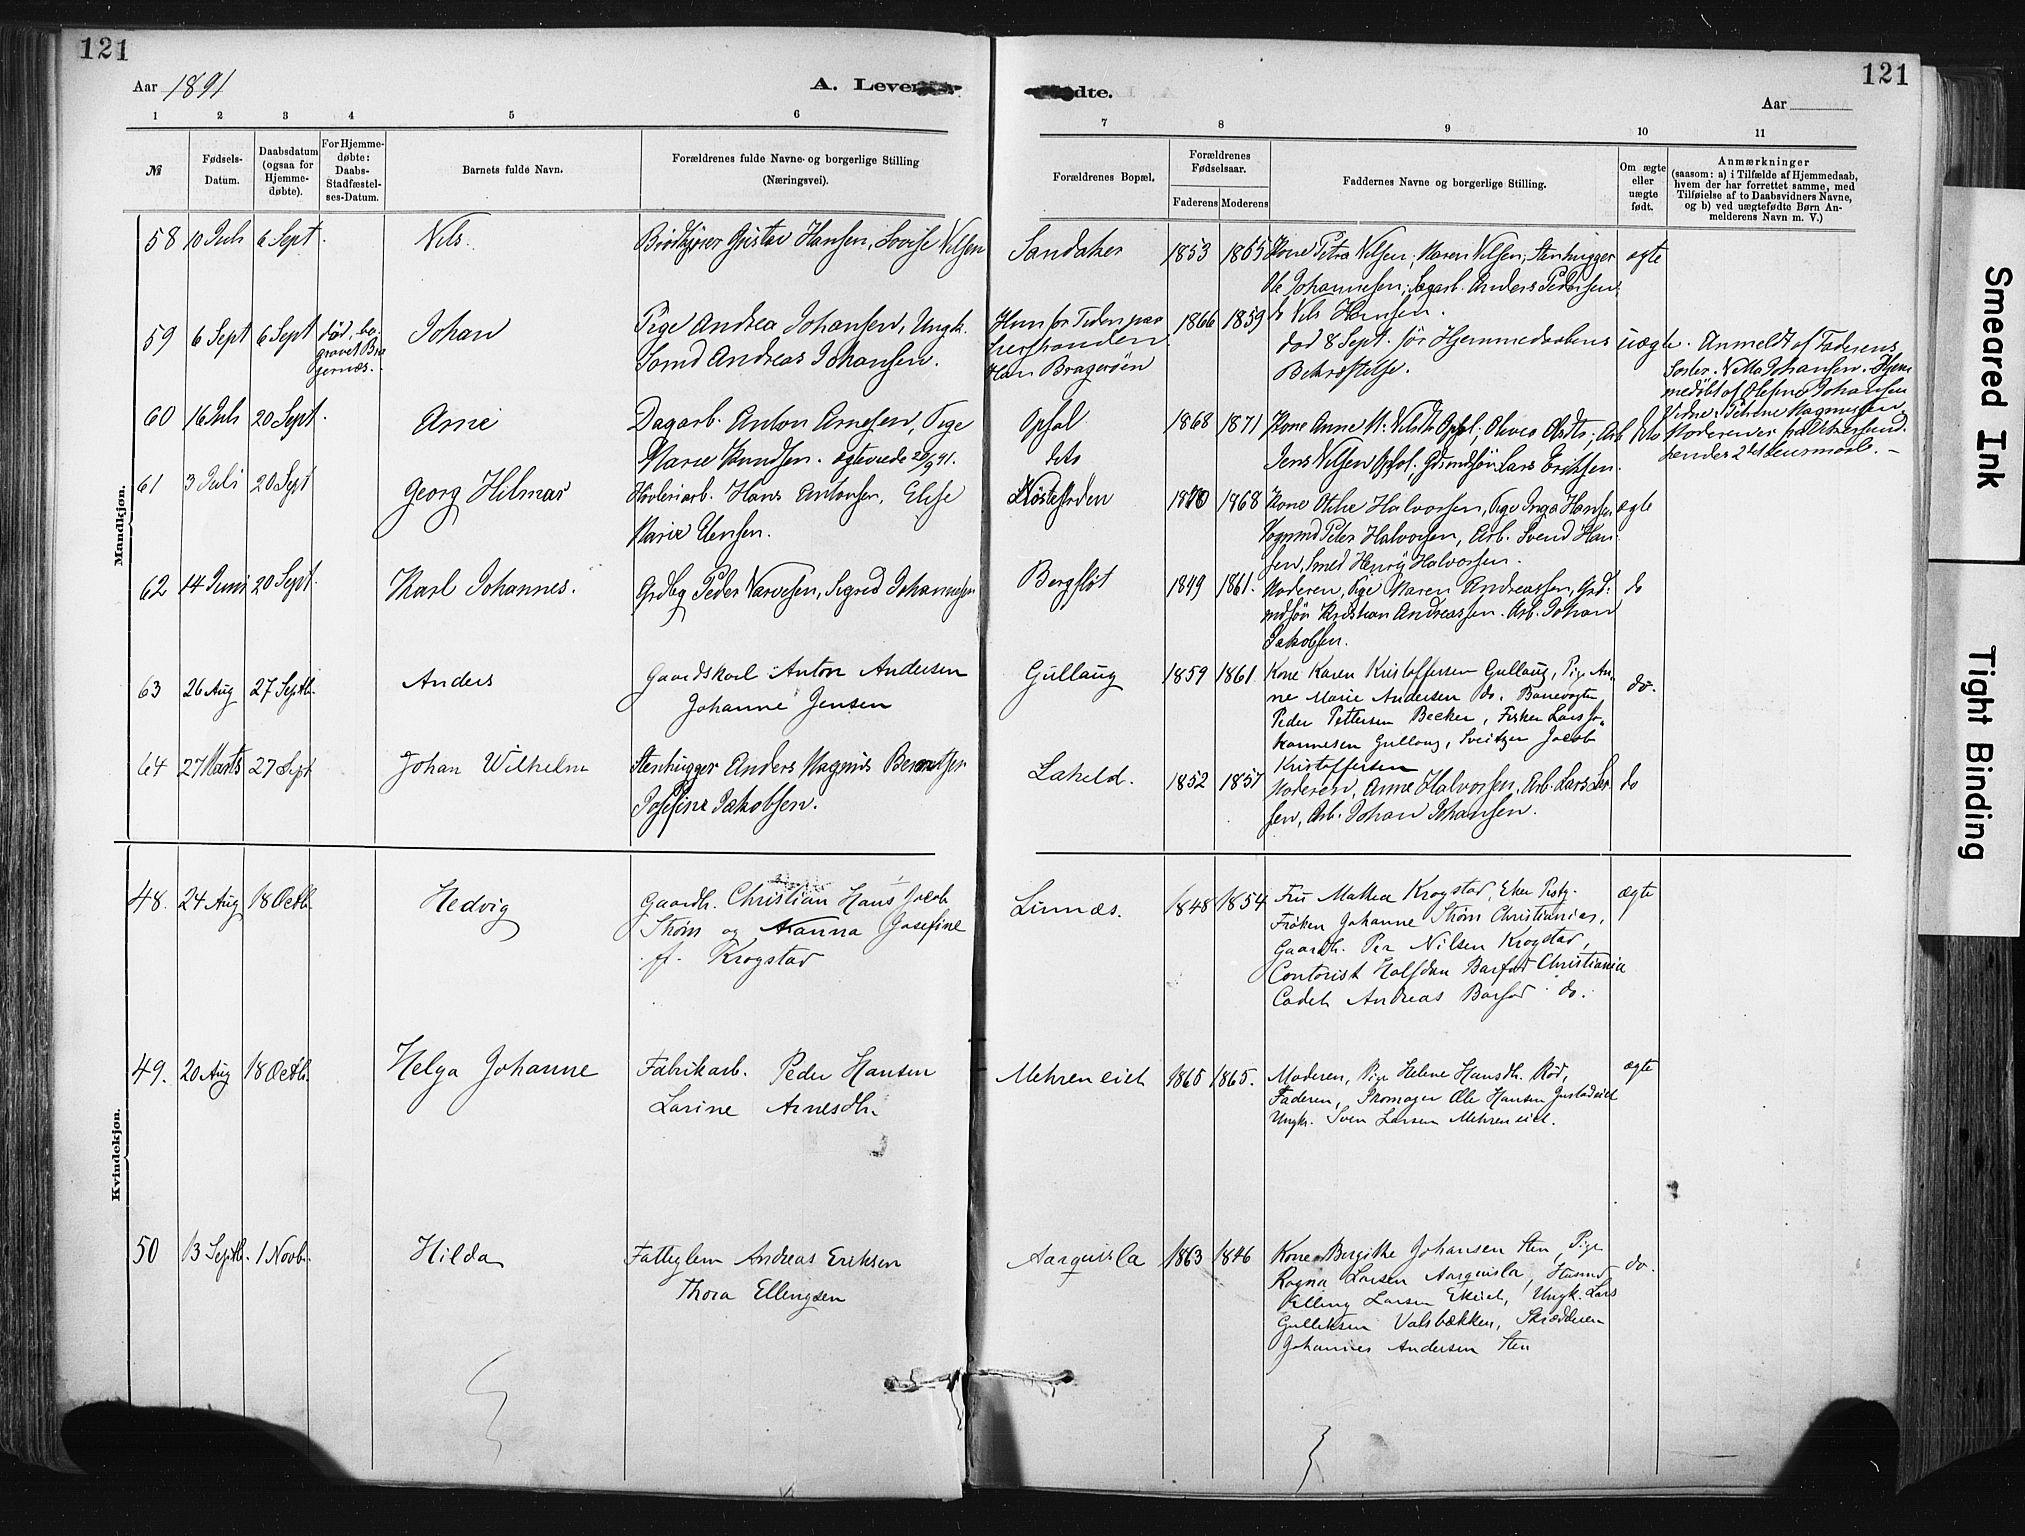 121
121
Aar 1891
A. Leven
dte.
Aar
1 2 3 4 5 6
7 8 9 10 11
№
Fødsels-
Datum.
Daabsdatum
(ogsaa for
Hjemme-
døbte).
For Hjemme-
døbte:
Daabs-
Stadfæstel-
ses-Datum.
Barnets fulde Navn.
Forældrenes fulde Navne og borgerlige Stilling
(Næringsvei).
Forældrenes Bopæl.
Forældrenes
Fødselsaar.
Faderens Moderens
Faddernes Navne og borgerlige Stilling.
Om ægte
eller
uægte
født.
Anmærkninger
(saasom: a) i Tilfælde af Hjemmedaab,
hvem der har forrettet samme, med
Tilføielse af to Daabsvidners Navne,
og b) ved uægtefødte Børn An-
melderens Navn m. V.)
Mandkjøn.
58 10 Juli 6 Sept. Nils. Brødkjører Gustav Hansen, Lovise Nilsen Sandaker 1853 1865 Kone Petra Nilsen, Maren Nilsen, Stenhugger ægte
Ole Johannesen, Sagarb. Anders Pedersen,
Nils Hansen.
59 6 Sept 6 Sept død, be-
gravet Bra
gernæs.
Johan Pige Andrea Johansen, Ungk.
Sømd Andreas Johansen.
Hun for Tiden paa
Han Bragerøen
1866 1859
død 8 Sept. før Hjemmedaabens
Bekræftelse.
uægte. Anmeldt af Faderens
Søster Netta Johansen. Hjem
medøbt af Olefine Johansen
60 16 Juli 20 Sept. Arne Dagarb. Anton Arnesen, Pige
Marie Knudsen.
Opsal
dets
1868 1871 Kone Anne M. Nilsdt Opsal;
Jens Nilsen Opsal, Grdmdsøn Lars Eriksen.
61 3 Juli 20 Sept Georg Hilmar Høvleriarb. Hans Antonsen, Elise
Marie Jensen.
1870 1868 Kone Othie Halvorsen, Pige Inga Hansen ægte
Vognmd Peter Halvorsen, Arb. Svend Han-
sen, Smed Henry Halvorsen.
62 14 Juni 20 Sept. Karl Johannes. Grdbg Peder Narvesen, Sigrid Johannesen Bergflot 1849 1861. Moderen, Pige Maren Andreassen, Grd- do
mdsøn Kristian Andreassen. Arb. Johan
Jakobsen.
63 26 Aug 27 Septb. Anders Gaardskarl Anton Andersen
Johanne Jensen
Gullaug 1859 1861 Kone Karen Kristoffersen Gullaug, Pige An- do.
ne Marie Andersen do. Banevogter
Peder Pettersen Becker, Fisker Lars Jo-
hannesen Gullaug, Sveitzer Jacob
Kristoffersen
64 27 Marts 27 Sept Johan Wilhelm Stenhugger Anders Magnus Berntsen
Josefine Jakobsen.
Lahelld. 1852 1857 Moderen, Anne Halvorsen, Arb. Lars Lar- do
sen, Arb. Johan Johansen.
Kvindekjøn.
48. 24 Aug 18 Octb. Hedvig Gaardb. Christian Hans Jacob
Strøm og Nanna Josefine
f. Krogstad
Linnæs. 1848 1854 Fru Mathea Krogstad, Eker Prstg. ægte
Frøken Johanne Strøm Christiania,
Gaardb. Per Nilsen Krogstad,
Contorist Halfdan Barfod Christiania
Cadet Andreas Barfod do.
49. 20 Aug 18 Octb. Helga Johanne Fabrikarb. Peder Hansen
Larine Arnesdtr.
Mehren eiet 1865 1865. Moderen, Pige Helene Hansdtr. Rød, ægte
Faderen, Skomager Ole Hansen Gustadeiet
Ungk. Sven Larsen Mehren eiet.
50 13 Septb. 1 Novb. Hilda Fattiglem Andreas Eriksen
Thora Ellingsen
Aarqvisla 1863 1846 Kone Bergithe Johansen Sten, Pige do.
Ragna Larsen Aarqvisla, Husmd
Elling Larsen Ekeiet, Ungk. Lars
Gulliksen Valsbækken, Skrædderen
Johannes Andersen Sten
Smeared Ink
Tight Binding